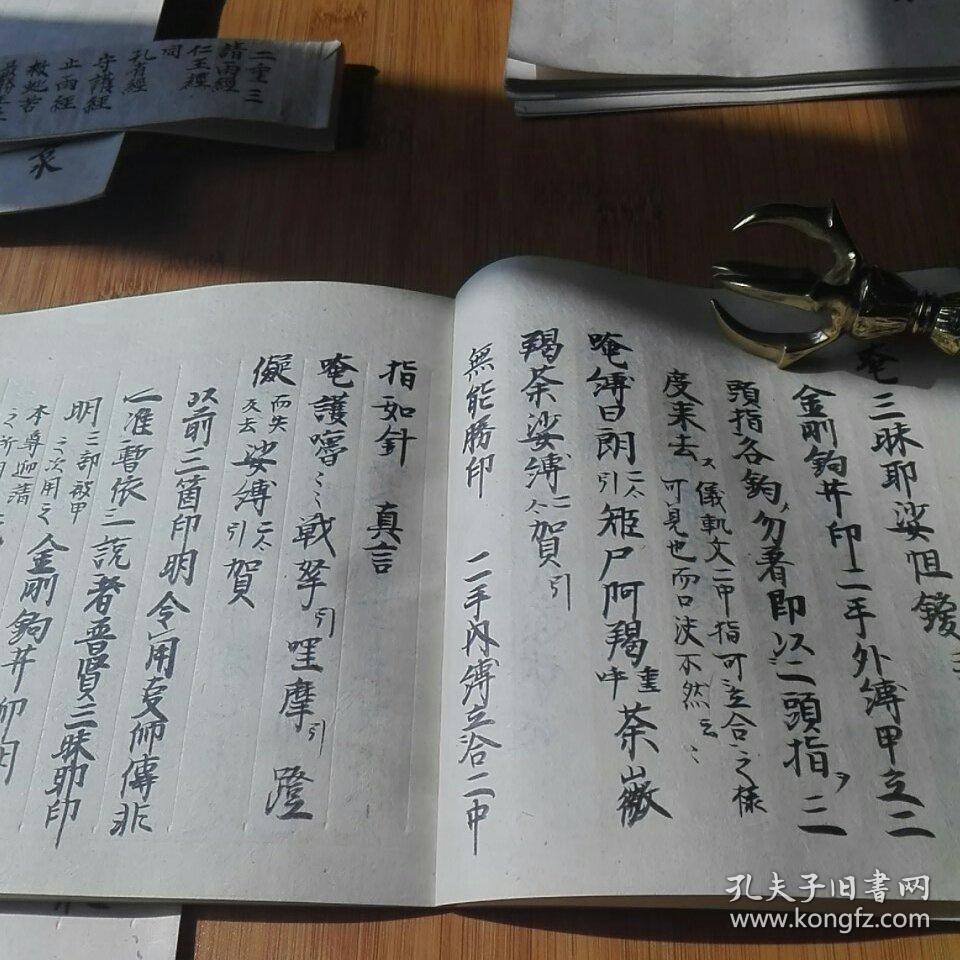 二重三
請雨經
仁王經
同
孔雀經
守護經
止雨經
救蛇苦
唵三昧耶娑怛鑁
金剛鉤并印二手外縛甲立二
頭指各鉤勿著即以二頭指二
度来去
儀軌文二甲指可立合之様
可見也而口决不然云云
唵縛日朗二合引矩尸阿羯重呼茶
羯茶娑縛二合賀引
無能勝印 二手内縛立合二中
指如針 真言
唵護嚕々々戰拏引哩摩引蹬
儗而失反去娑縛二合引賀
以前二箇印明令用支師傳非
准暫依三説者普賢三昧耶印
明三部被甲之次用之金剛鉤并印因
本尊迎請
孔夫子旧書网
www.kongfz.com